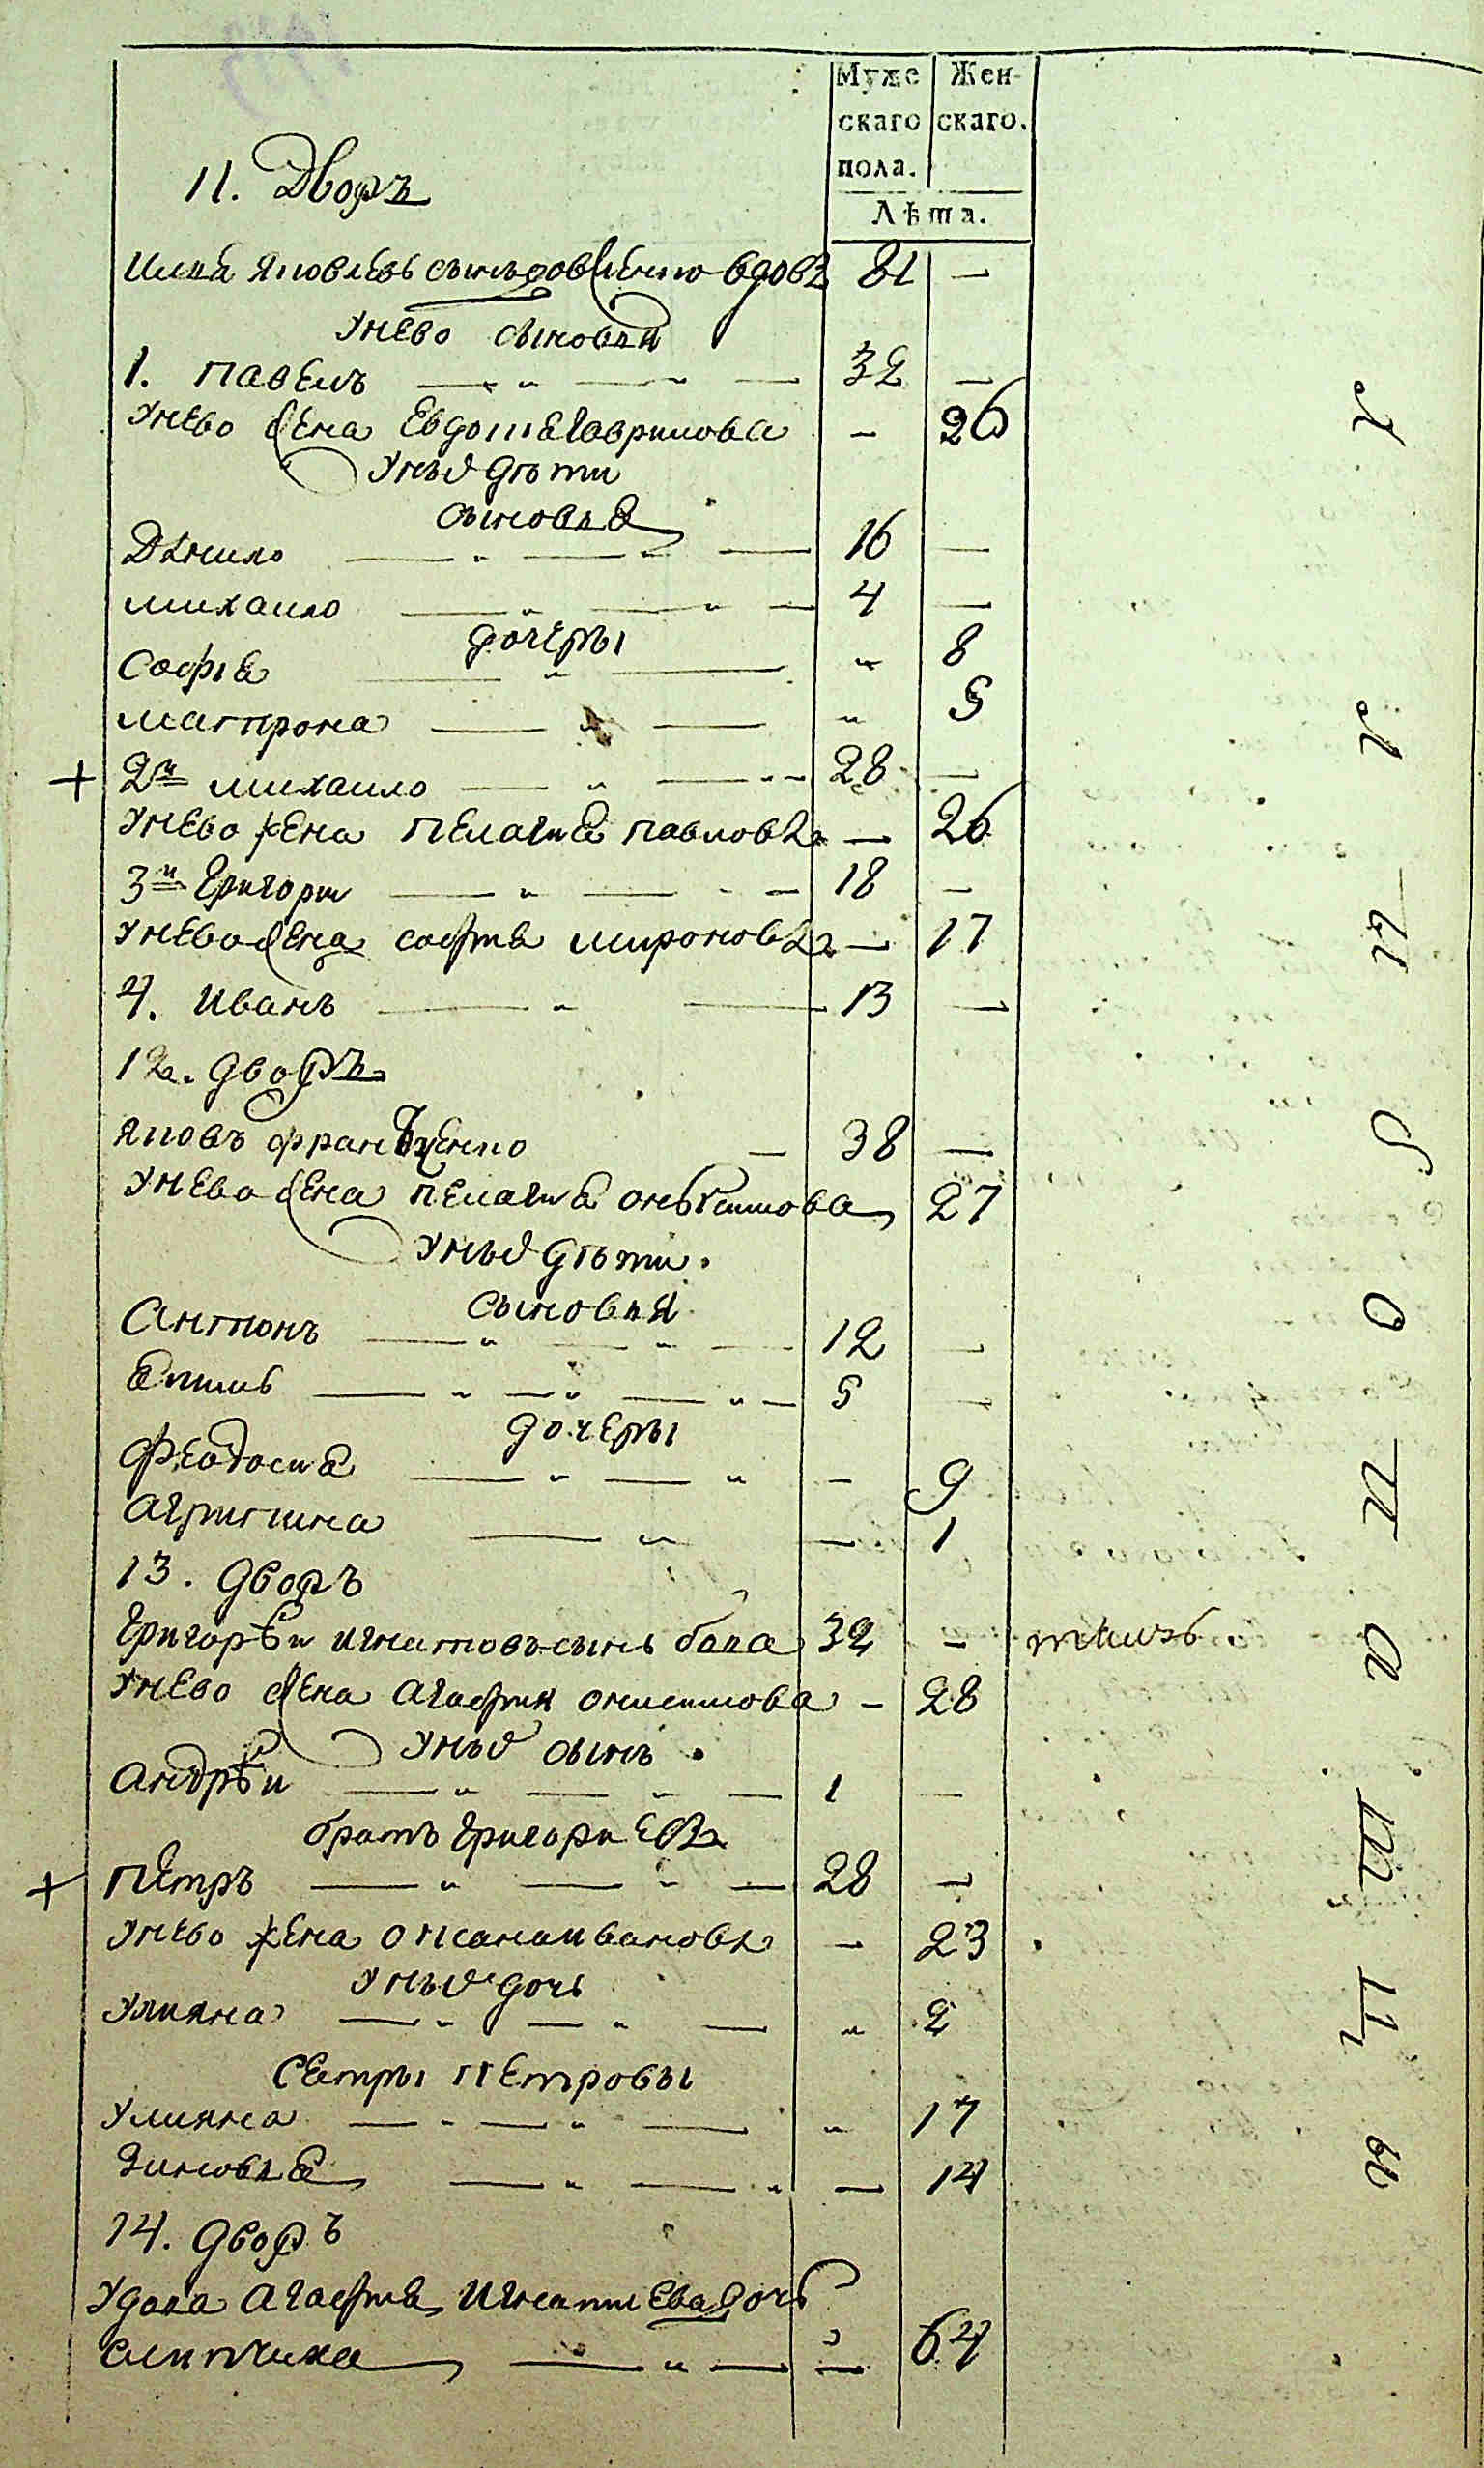 Муже Жен-
скаго скаго.
пола.
Лѣта.
11. Дворъ
Илия Яковлевъ сынъ вдовъ 81 —
Унево сыновья
1. Павелъ — 32 —
Унево жена Евдокия Гаврилова — 26
Унихъ дѣти
сыновья
Данило — 16 —
Михаило — 4 —
дочеры
Софıя — „ 8
Матрона — „ 5
+ 2й Михаило — 28 —
Унево жена Пелагия Павлова — 26
3й Григори — 18 —
Унево жена София Миронова — 17
4. Иванъ — 13 —
12. дворъ
Яковъ — 38 —
Унево жена Пелагия 27
Унихъ дѣти.
сыновья
Антонъ — 12 —
5 —
дочеры
Феодосия — 9
Агрипина — 1
13. дворъ
Григорѣи Игнатовъ сынъ 32 —
Унево жена Агафия Онисимова — 28
Унихъ сынъ.
Андрѣи — 1 —
братъ Григориевъ
+ Петръ — 28 —
Унево жена Оксана Иванова — 23
Унихъ дочь
Улияна — „ 2
Сестры Петровы
Улияна — „ 17
Зиновия — 14
14. дворъ
Удова Агафия Игнатиева дочь
— 64